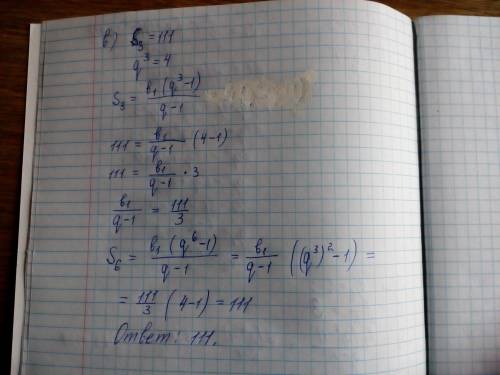 в) S₃ = 111
q³ = 4
S₃ = b₁(q³-1)/q-1
111 = b₁/q-1 (4-1)
111 = b₁/q-1 · 3
b₁/q-1 = 111/3
S₆ = b₁(q⁶-1)/q-1 = b₁/q-1 ((q³)²-1) =
= 111/3 (4-1) = 111
Ответ: 111.